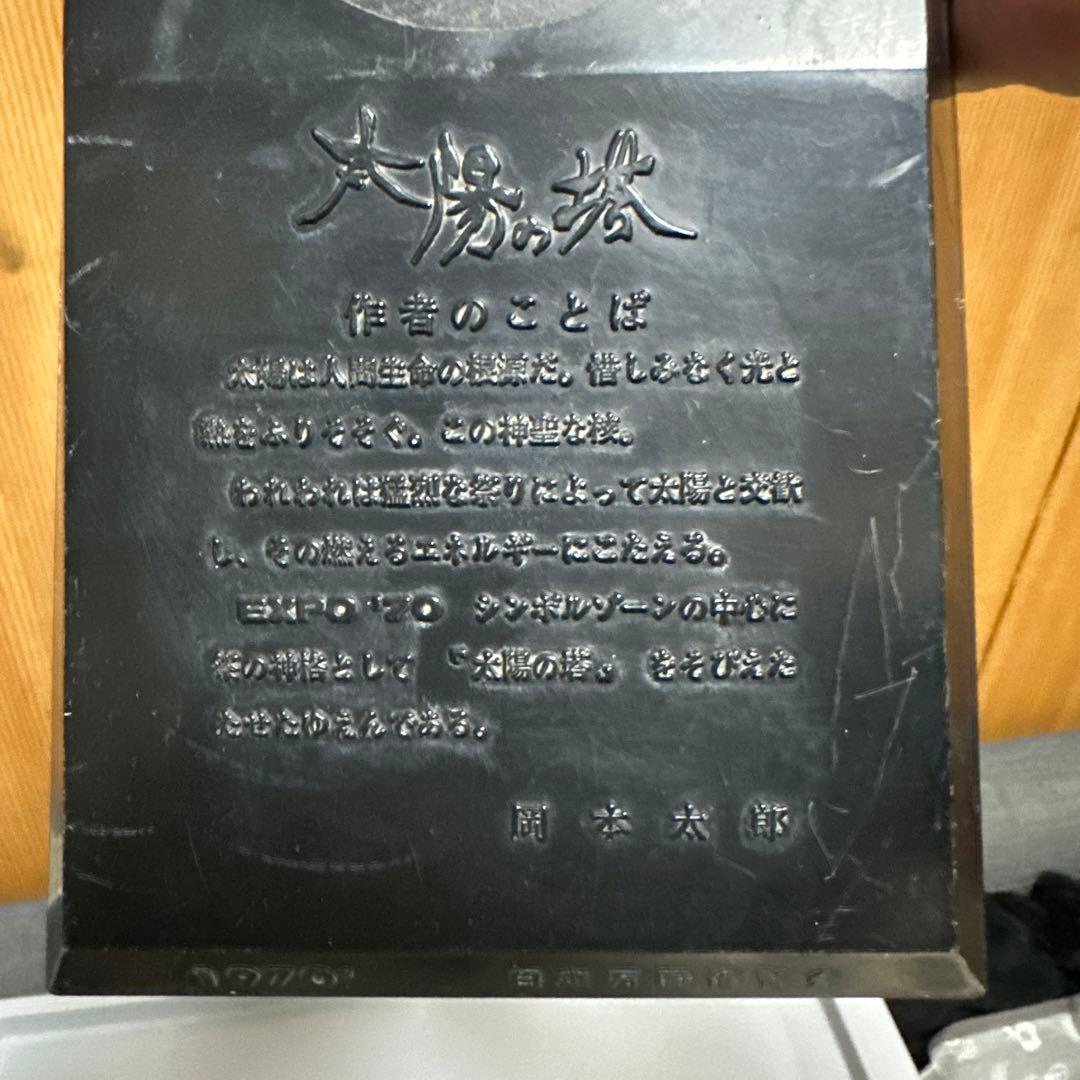 太陽の塔
作者のことば
太陽は人間生命の根源だ。惜しみなく光と
熱をふりそそぐ。この神聖な核。
われわれは猛烈な祭りによって太陽と交歓
し、その燃えるエネルギーにこたえる。
EXPO '70 シンボルゾーンの中心に
祭の神格として『太陽の塔』をそびえた
たせたゆえんである。
岡本太郎
1970